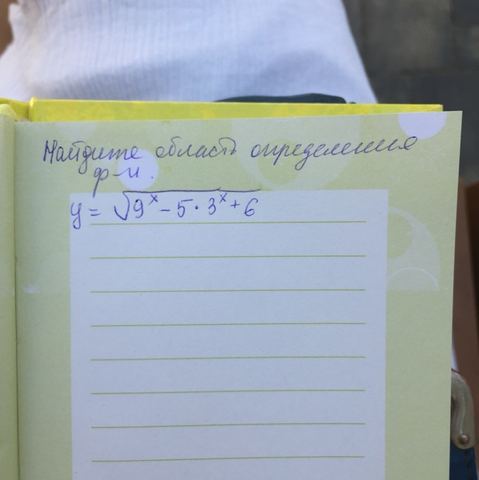 Найдите область определения
ф-и.
y = √9ˣ - 5 · 3ˣ + 6